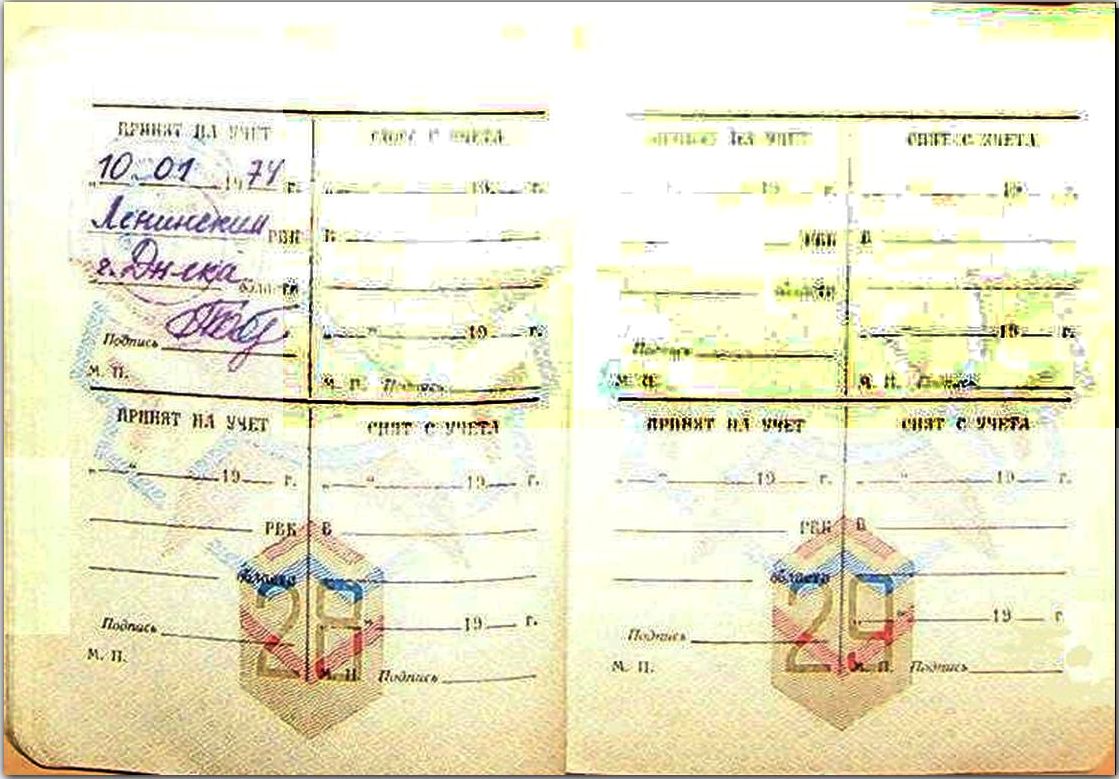 ПРИНЯТ НА УЧЕТ
10 01 1974 г.
Ленинским РВК
г. Дн-ска области
Подпись
М. П.
СНЯТ С УЧЕТА
" " 19 г.
В
" " 19 г.
М. П. Подпись
ПРИНЯТ НА УЧЕТ
" " 19 г.
РВК
области
Подпись
М. П.
СНЯТ С УЧЕТА
" " 19 г.
В
" 19 г.
М. П. Подпись
28
ПРИНЯТ НА УЧЕТ
19 г.
РВК
области
Подпись
М. П.
СНЯТ С УЧЕТА
19 г.
В
19 г.
М. П. Подпись
ПРИНЯТ НА УЧЕТ
" " 19 г.
РВК
области
Подпись
М. П.
СНЯТ С УЧЕТА
" " 19 г.
В
" 19 г.
М. П. Подпись
29